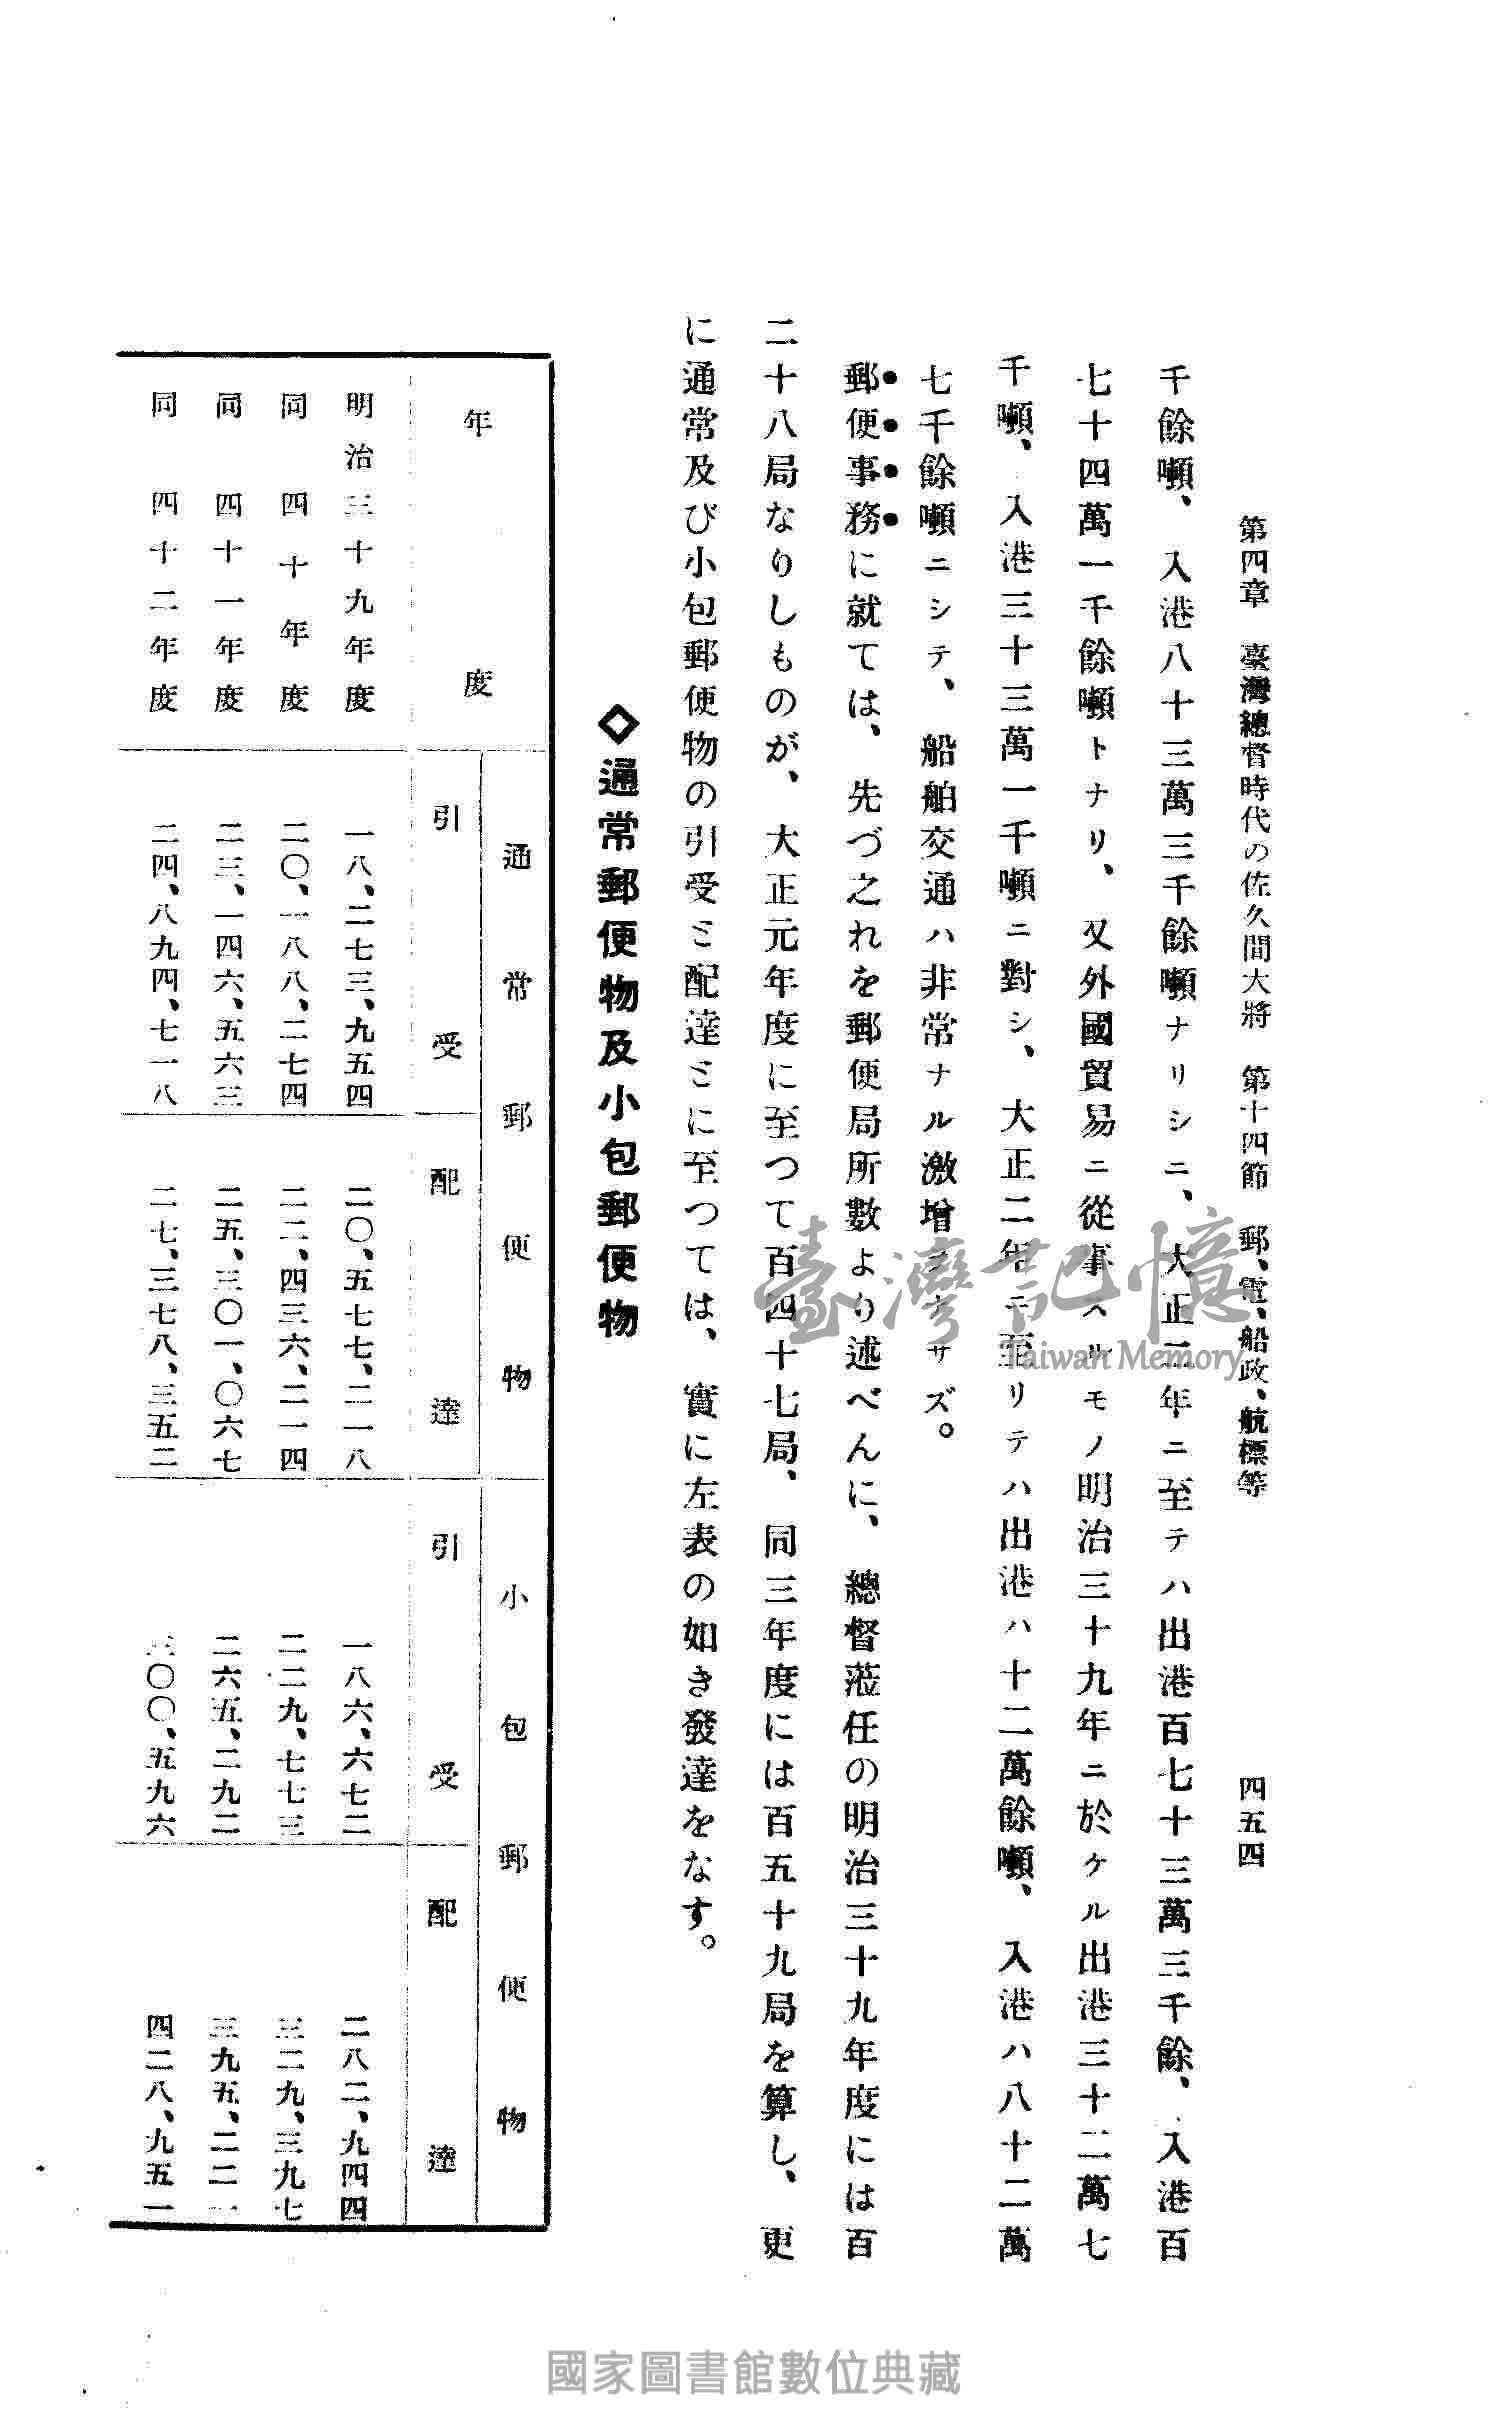 第四章 臺灣總督時代の佐久間大將 第十四節 郵、電、船政、航標等 四五四
千餘噸、入港八十三萬三千餘噸ナリシニ、大正二年ニ至テハ出港百七十三萬三千餘、入港百
七十四萬一千餘噸トナリ、又外國貿易ニ從事スルモノ明治三十九年ニ於ケル出港三十二萬七
千噸、入港三十三萬一千噸ニ對シ、大正二年ニ至リテハ出港ハ十二萬餘噸、入港ハ八十二萬
七千餘噸ニシテ、船舶交通ハ非常ナル激增ヲナサズ。
郵便事務に就ては、先づ之れを郵便局所數より述べんに、總督蒞任の明治三十九年度には百
二十八局なりしものが、大正元年度に至つて百四十七局、同三年度には百五十九局を算し、更
に通常及び小包郵便物の引受ミ配達ミに至つては、實に左表の如き發達をなす。
◇通常郵便物及小包郵便物
年度 通常郵便物 小包郵便物
引受 配達 引受 配達
明治三十九年度 一八、二七三、九五四 二〇、五七七、二一八 一八六、六七二 二八二、九四四
同 四十年度 二〇、一八八、二七四 二二、四三六、二一四 二二九、七七三 三二九、三九七
同 四十一年度 二三、一四六、五六三 二五、三〇一、〇六七 二六五、二九二 三九五、二二一
同 四十二年度 二四、八九四、七一八 二七、三七八、三五二 三〇〇、五九六 四二八、九五一
臺灣記憶
Taiwan Memory
國家圖書館數位典藏